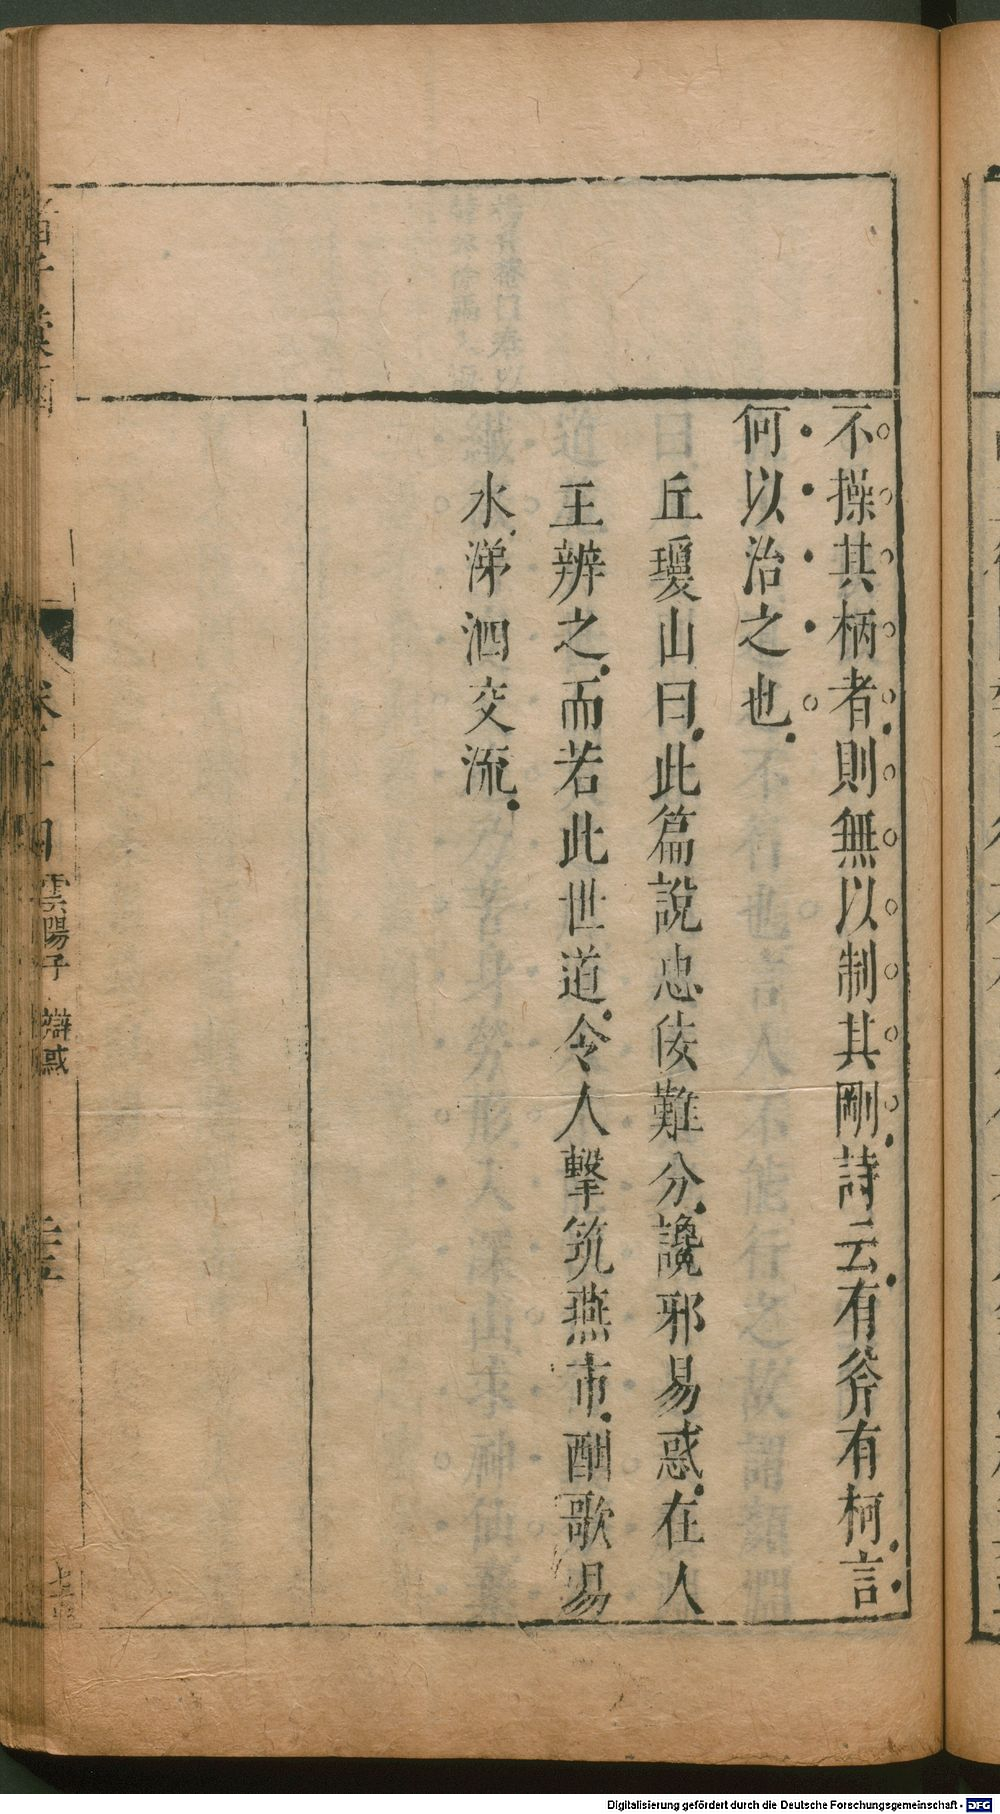 不操其柄者則無以制其剛詩云有斧有柯言
何以治之也
丘瓊山曰此篇說忠佞難分讒邪易惑在人
王辨之而若此世道令人擊筑燕市酣歌易
水涕泗交流
雲陽子 辯惑
Digitalisierung gefördert durch die Deutsche Forschungsgemeinschaft - DFG